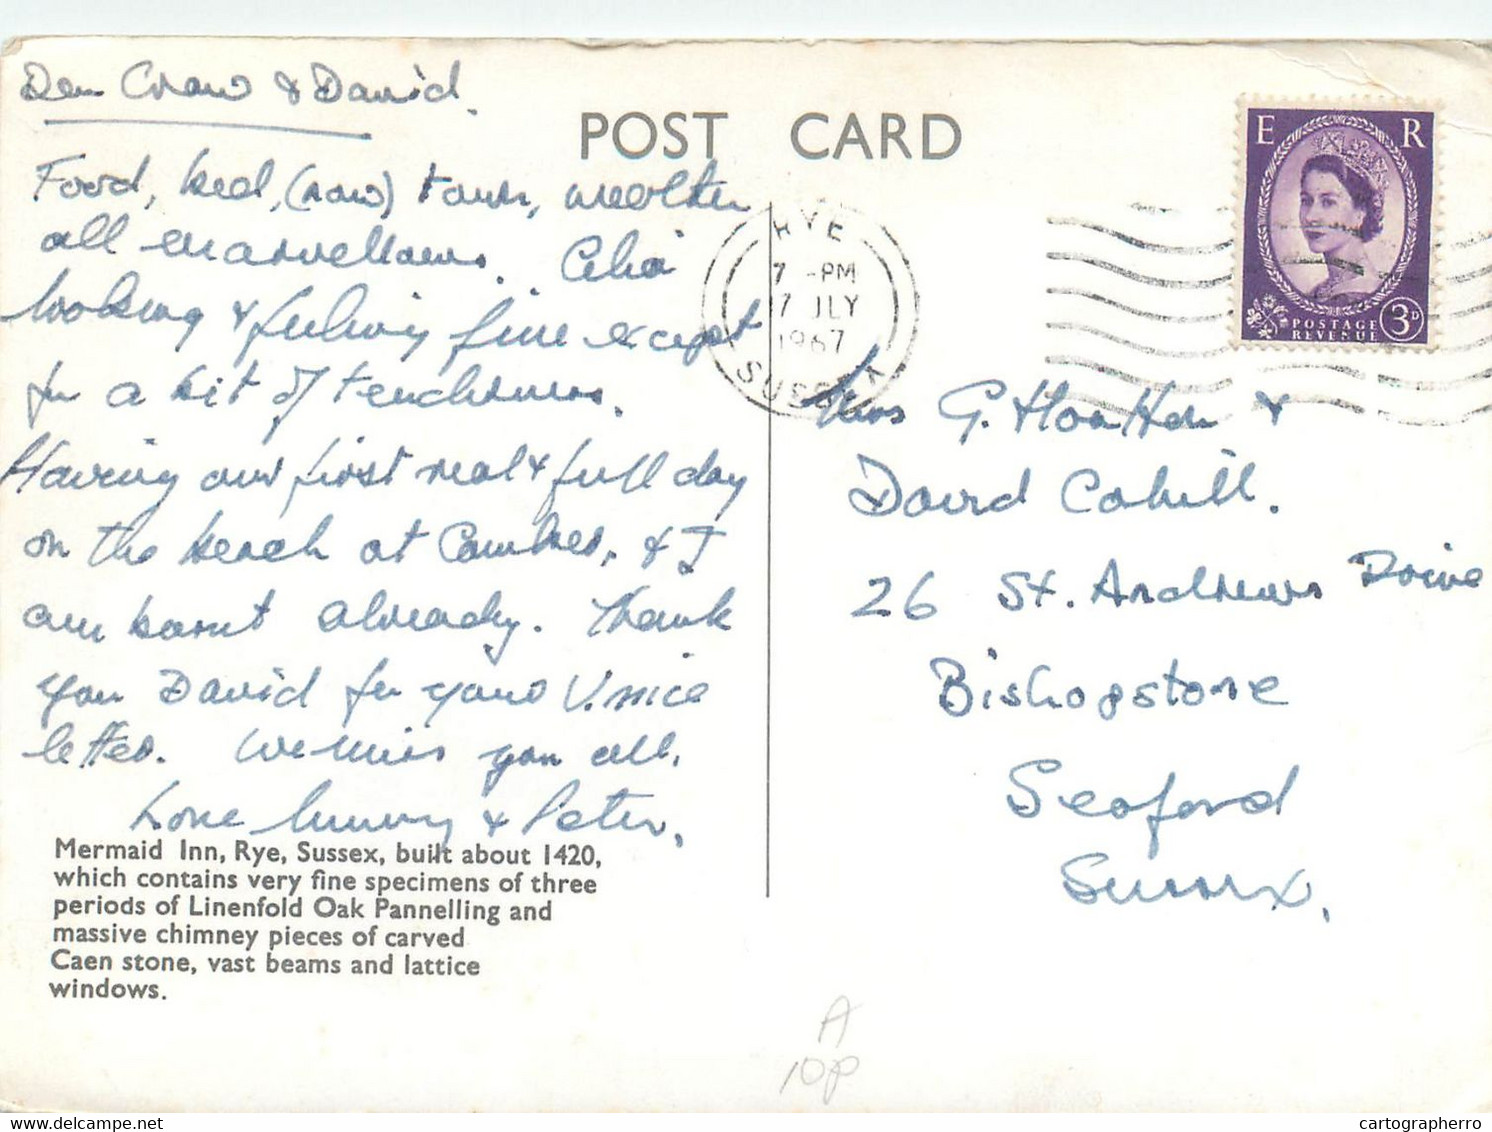 Dear & David.
Food, bed, (now) town, weather
all marvellous. Celia
looking & feeling fine except
for a bit of tenderness.
Having our first real & full day
on the beach at Camber, & I
am burnt already. Thank
you David for your V. nice
letter. We miss you all.
Love Mummy & Peter.
Mermaid Inn, Rye, Sussex, built about 1420,
which contains very fine specimens of three
periods of Linenfold Oak Pannelling and
massive chimney pieces of carved
Caen stone, vast beams and lattice
windows.
POST CARD
RYE
7 -PM
7 JLY
1967
SUSSEX
E R
POSTAGE
REVENUE
3D
Miss G. &
David Cahill.
26 St. Andrews Drive
Bishopstone
Seaford
Sussex.
A
10p
delcampe.net
cartographerro